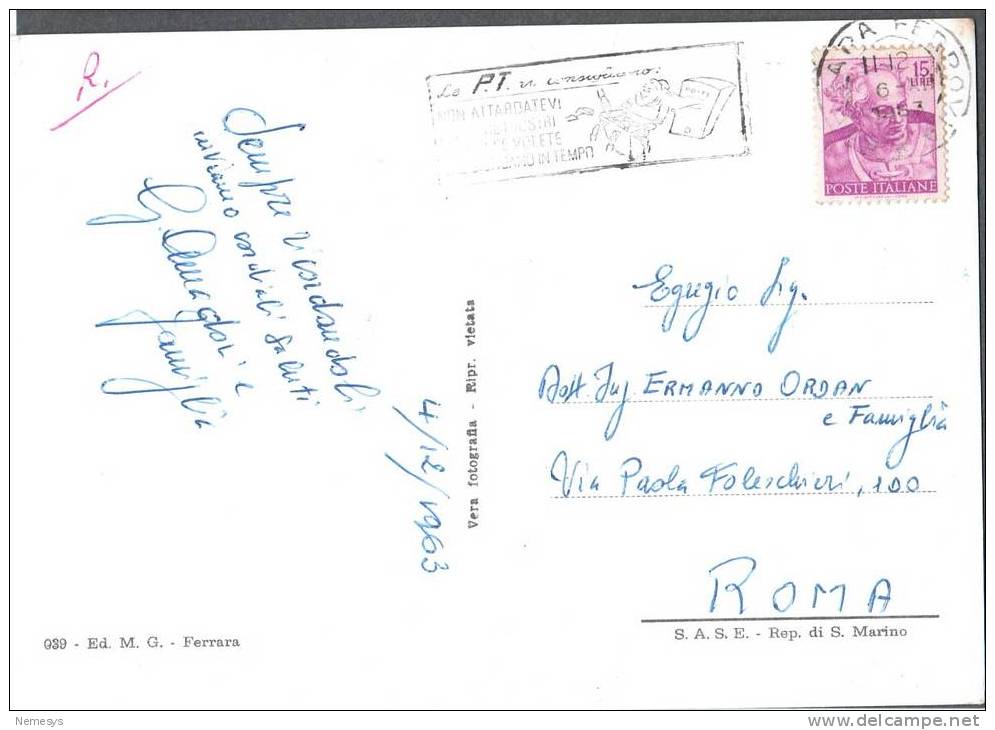 R.
Sempre ricordandoli
inviamo cordiali saluti
G. Amadori e
famiglia
4/12/1963
Vera fotografia - Ripr. vietata
Le P.T. vi consigliano:
NON ATTARDATEVI
VOLETE
IN TEMPO
11-12
6
15
LIRE
POSTE ITALIANE
Egregio Sig.
Dott. Ing. ERMANNO ORDAN
e Famiglia
Via Paola Foleschieri, 100
ROMA
S. A. S. E. - Rep. di S. Marino
039 - Ed. M. G. - Ferrara
Nemesys
delcampe.net